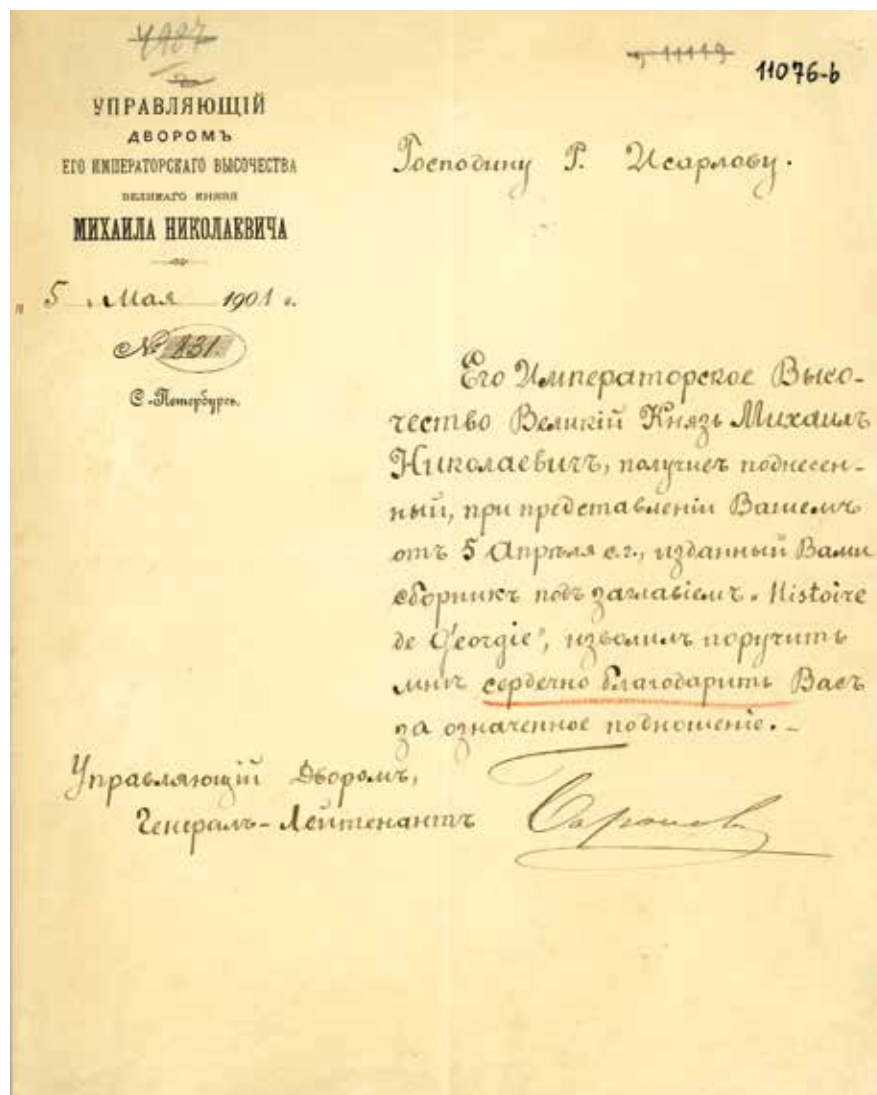 4987
11119
11076-b
УПРАВЛЯЮЩІЙ
ДВОРОМЪ
ЕГО ИМПЕРАТОРСКАГО ВЫСОЧЕСТВА
ВЕЛИКАГО КНЯЗЯ
МИХАИЛА НИКОЛАЕВИЧА
„ 5 „ Мая 1901 г.
№ 831.
С.-Петербургъ.
Господину Г. Исарлову.
Его Императорское Высо-
чество Великій Князь Михаилъ
Николаевичъ, получивъ поднесен-
ный, при представленіи Вашемъ
отъ 5 Апрѣля с.г., изданный Вами
сборникъ подъ заглавіемъ „Histoire
de Géorgie", изволилъ поручить
мнѣ сердечно благодарить Васъ
за означенное подношеніе. –
Управляющій Дворомъ,
Генералъ-Лейтенантъ